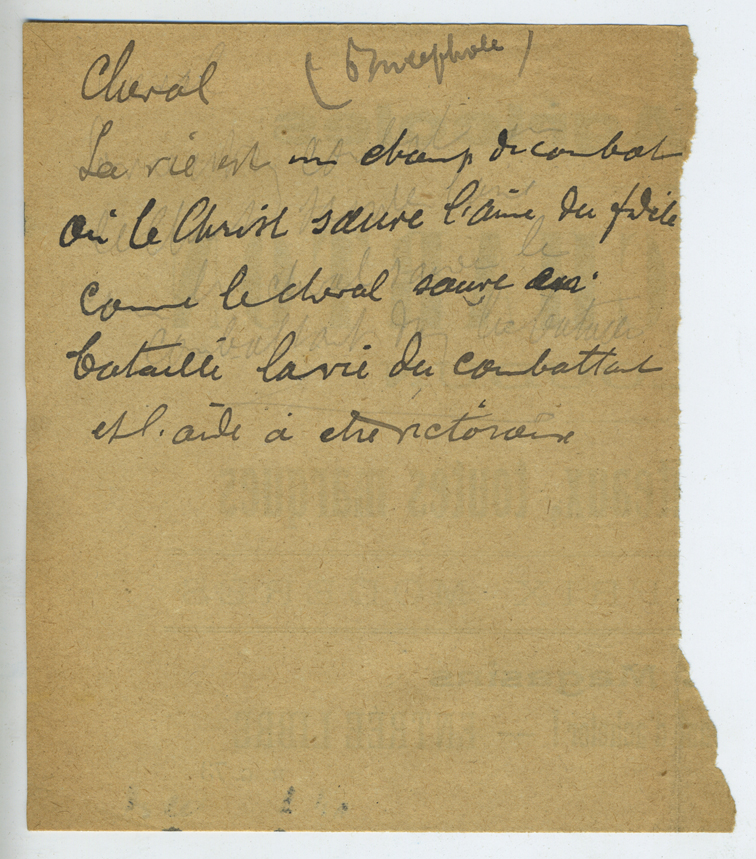 Cheval (Bucéphale)
La vie est un champ de combat
où le Christ sauve l'âme du fidèle
come le cheval sauve en
bataille la vie du combattant
et l'aide à etre victorieux